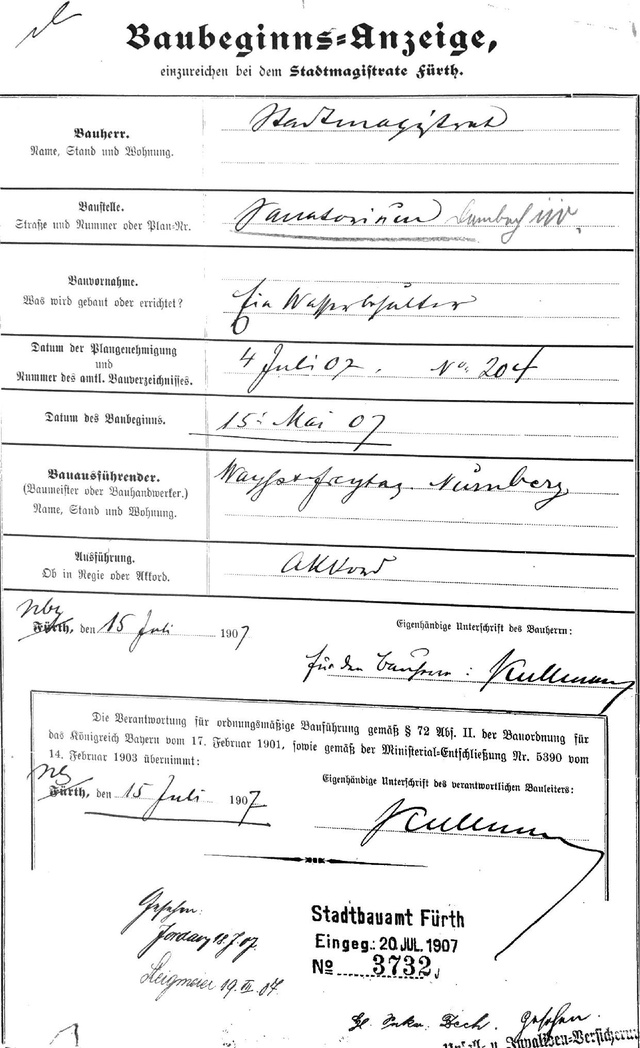 Baubeginns-Anzeige,
einzureichen bei dem Stadtmagistrate Fürth.
Bauherr.
Name, Stand und Wohnung.
Stadtmagistrat
Baustelle.
Straße und Nummer oder Plan-Nr.
Sanatorium Dambach
Bauvornahme.
Was wird gebaut oder errichtet?
Ein Wasserbehälter
Datum der Plangenehmigung
und
Nummer des amtl. Bauverzeichnisses.
4 Juli 07. No. 204
Datum des Baubeginns.
15. Mai 07
Bauausführender.
(Baumeister oder Bauhandwerker.)
Name, Stand und Wohnung.
Wayss & Freytag Nürnberg
Ausführung.
Ob in Regie oder Akkord.
Akkord
Nbg
Fürth, den 15 Juli 1907
Eigenhändige Unterschrift des Bauherrn:
für den Bauherrn: Kullmann
Die Verantwortung für ordnungsmäßige Bauführung gemäß § 72 Abs. II. der Bauordnung für
das Königreich Bayern vom 17. Februar 1901, sowie gemäß der Ministerial-Entschließung Nr. 5390 vom
14. Februar 1903 übernimmt:
Nbg
Fürth, den 15 Juli 1907
Eigenhändige Unterschrift des verantwortlichen Bauleiters:
Kullmann
Gesehen:
18.7.07.
19. 07
Stadtbauamt Fürth
Eingeg.: 20 JUL. 1907
No 3732
Gesehen.
Unfall- u. Invaliden-Versicherung